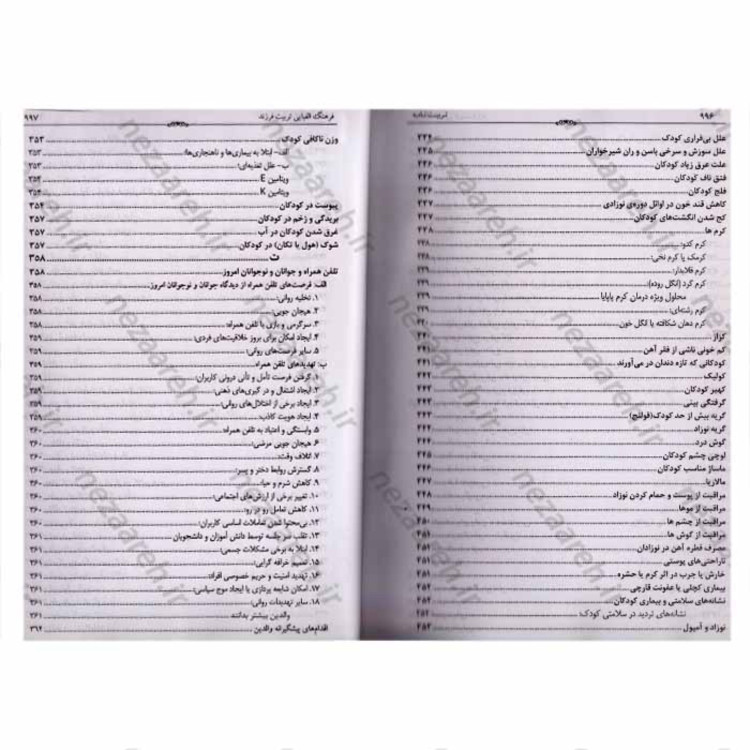 ۹۹۶
علل بی‌قراری کودک ۲۳۴
علل سوزش و سرخی باسن و ران شیرخواران ۲۳۵
علت عرق زیاد کودکان ۲۳۶
فتق ناف کودکان ۲۳۶
فلج کودکان ۲۳۶
کاهش قند خون در اوائل دوره‌ی نوزادی ۲۳۷
کج شدن انگشت‌های کودکان ۲۳۷
کرم ها ۲۳۷
کرم کدو: ۲۳۸
کرمک یا کرم نخی:
کرم قلابدار:
کرم گرد (انگل روده):
محلول ویژه درمان کرم پاپایا ۲۳۹
کرم رشته‌ای: ۲۳۹
کرم دهان شکافته یا انگل خون
کزاز ۲۴۰
کم خونی ناشی از فقر آهن
کودکانی که تازه دندان در می‌آورند
کولیک
کهیر کودکان
گرفتگی بینی
گریه بیش از حد کودک(قولنج)
گریه نوزاد ۲۴۴
گوش درد ۲۴۴
لوچی چشم کودکان
ماساژ مناسب کودکان
مالاریا
مراقبت از پوست و حمام کردن نوزاد
مراقبت از موها
مراقبت از چشم ها
مراقبت از گوش ها
مصرف قطره آهن در نوزادان
ناراحتی‌های پوستی
خارش یا جرب در اثر کرم یا حشره
بیماری کچلی یا عفونت قارچی
نشانه‌های سلامتی و بیماری کودکان ۲۵۲
نشانه‌های تردید در سلامتی کودک: ۲۵۲
نوزاد و آمپول
فرهنگ الفبایی تربیت فرزند ۹۹۷
وزن ناکافی کودک ۳۵۳
الف- ابتلا به بیماری‌ها و ناهنجاری‌ها: ۳۵۳
ب- علل تغذیه‌ای: ۳۵۳
ویتامین E ۳۵۴
ویتامین K ۳۵۴
یبوست در کودکان ۳۵۴
بریدگی و زخم در کودکان ۳۵۷
غرق شدن کودکان در آب ۳۵۷
شوک (هول یا تکان) در کودکان ۳۵۷
ت ۳۵۸
تلفن همراه و جوانان و نوجوانان امروز ۳۵۸
الف: فرصت‌های تلفن همراه از دیدگاه جوانان و نوجوانان امروز ۳۵۸
۱. تخلیه روانی: ۳۵۸
۲. هیجان جویی: ۳۵۸
۳. سرگرمی و بازی با تلفن همراه: ۳۵۸
۴. ایجاد امکان برای بروز خلاقیت‌های فردی: ۳۵۹
۵. سایر فرصت‌های روانی: ۳۵۹
ب: تهدیدهای تلفن همراه: ۳۵۹
۱. گرفتن فرصت تأمل و تأنی درونی کاربران: ۳۵۹
۲. ایجاد اشتغال و در گیری‌های ذهنی: ۳۵۹
۳. ایجاد برخی از اختلال‌های روانی: ۳۵۹
۴. ایجاد هویت کاذب: ۳۵۹
۵. وابستگی و اعتیاد به تلفن همراه: ۳۶۰
۶. هیجان جویی مرضی: ۳۶۰
۷. اتلاف وقت: ۳۶۰
۸. گسترش روابط دختر و پسر: ۳۶۰
۹. کاهش شرم و حیا: ۳۶۰
۱۰. تغییر برخی از ارزش‌های اجتماعی: ۳۶۰
۱۱. کاهش تعامل رو در رو: ۳۶۰
۱۲. بی‌محتوا شدن تعاملات اساسی کاربران: ۳۶۰
۱۳. تقلب در جلسه توسط دانش آموزان و دانشجویان ۳۶۱
۱۴. ابتلا به برخی مشکلات جسمی: ۳۶۱
۱۵. تعمیم خرافه گرایی: ۳۶۱
۱۶. تهدید امنیت و حریم خصوصی افراد: ۳۶۱
۱۷. امکان شایعه پردازی یا ایجاد موج سیاسی: ۳۶۱
۱۸. سایر تهدیدات روانی: ۳۶۱
والدین بیشتر بدانند
اقدام‌های پیشگیرانه والدین
nezaareh.ir